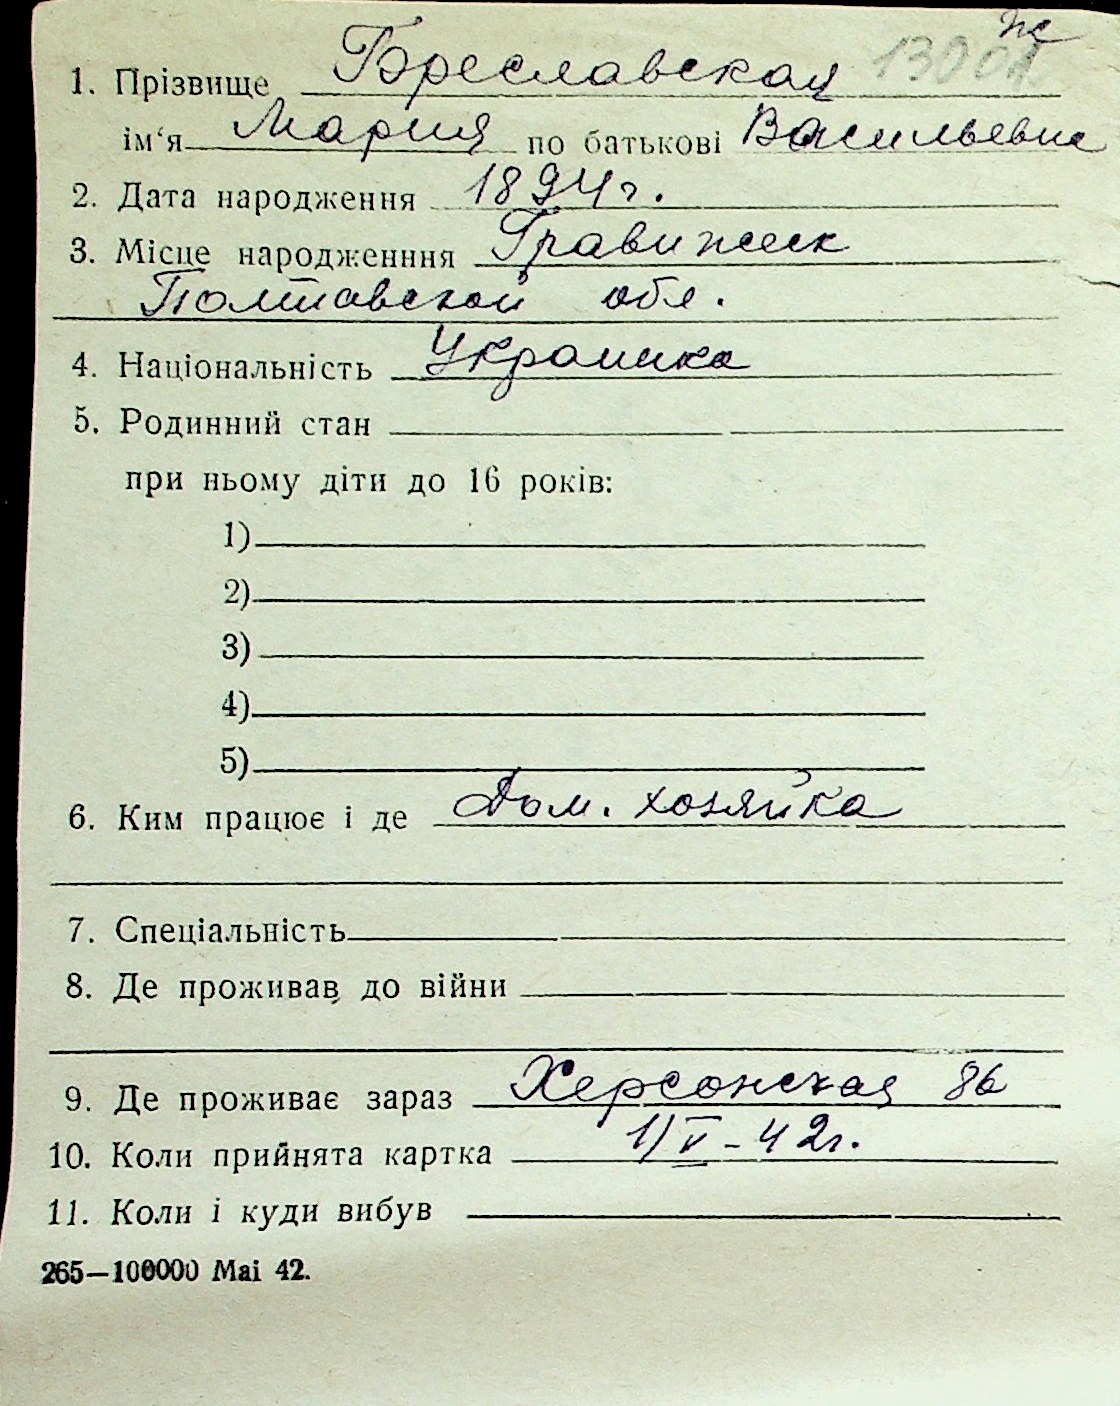 1. Прізвище Бреславская
ім‘я Мария по батькові Васильевна
2. Дата народження 1894 г.
3. Місце народженння Гравижск
Полтавской обл.
4. Національність Украинка
5. Родинний стан
при ньому діти до 16 років:
1)
2)
3)
4)
5)
6. Ким працює і де Дом. хозяйка
7. Спеціальність
8. Де проживав до війни
9. Де проживає зараз Херсонская 86
10. Коли прийнята картка 1/V - 42г.
11. Коли і куди вибув
265—100000 Mai 42.